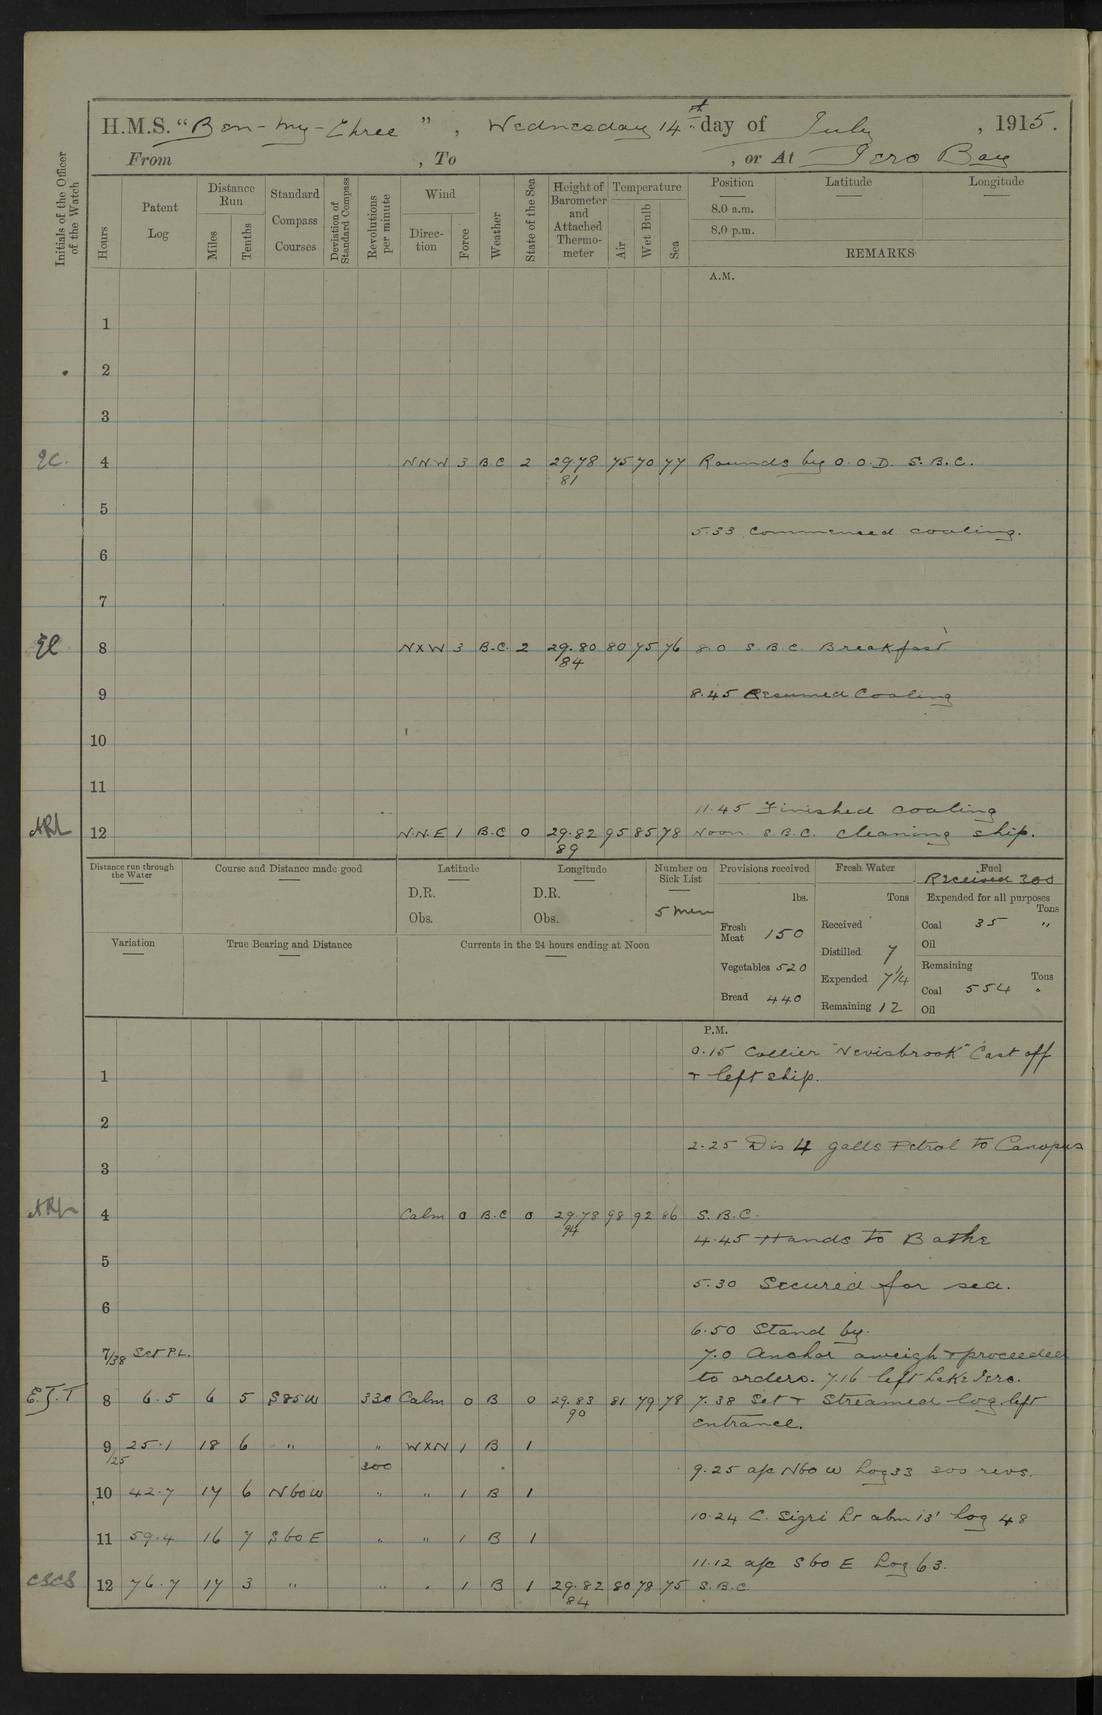 H.M.S. "Ben-my-Chree", Wednesday 14th day of July, 1915.
From , To , or At Iero Bay
Initials of the Officer of the Watch
Hours
Patent Log
Distance Run
Miles
Tenths
Standard Compass Courses
Deviation of Standard Compass
Revolutions per minute
Wind
Direction
Force
Weather
State of the Sea
Height of Barometer and Attached Thermometer
Temperature
Air
Wet Bulb
Sea
Position
Latitude
Longitude
8.0 a.m.
8.0 p.m.
REMARKS
A.M.
1
2
3
4 N.N.W 3 B.C 2 29.78 75 70 77 Rounds by O.O.D. S.B.C.
81
5
5.33 Commenced coaling.
6
7
8 NXW 3 B.C. 2 29.80 80 75 76 8.0 S.B.C. Breakfast
84
9 8.45 Resumed Coaling
10
11
11.45 Finished coaling
ARL 12 N.N.E 1 B.C 0 29.82 95 85 78 Noon S.B.C. cleaning ship.
89
Distance run through the Water
Course and Distance made good
Latitude
D.R.
Obs.
Longitude
D.R.
Obs.
Number on Sick List
5 men
Provisions received
lbs.
Fresh Meat 150
Vegetables 520
Bread 440
Fresh Water
Tons
Received
Distilled 7
Expended 7 1/4
Remaining 12
Fuel
Received 300
Expended for all purposes
Tons
Coal 35 "
Oil
Remaining
Tons
Coal 554 "
Oil
Variation
True Bearing and Distance
Currents in the 24 hours ending at Noon
P.M.
0.15 Collier "Nevisbrook" Cast off
1 + left ship.
2
2.25 Dis 4 galls Petrol to Canopus
3
ARL 4 Calm 0 B.C 0 29.78 98 92 86 S.B.C.
94
4.45 Hands to Bathe
5
5.30 Secured for sea.
6
6.50 Stand by.
7/38 Set P.L. 7.0 Anchor aweigh + proceeded
to orders. 7.16 left Lake Iero.
E.J.T 8 6.5 6 5 S85W 330 Calm 0 B 0 29.83 81 79 78 7.38 Set + Streamed log left
90 entrance.
9 25.1 18 6 " " WXN 1 B 1
/25 300
9.25 a/c N60W Log 33 300 revs.
10 42.7 17 6 N60W " " 1 B 1
10.24 C. Sigri Lt abm 13' Log 48
11 59.4 16 7 S60E " " 1 B 1
11.12 a/c S60E Log 63.
CSCS 12 76.7 17 3 " " " 1 B 1 29.82 80 78 75 S.B.C
84